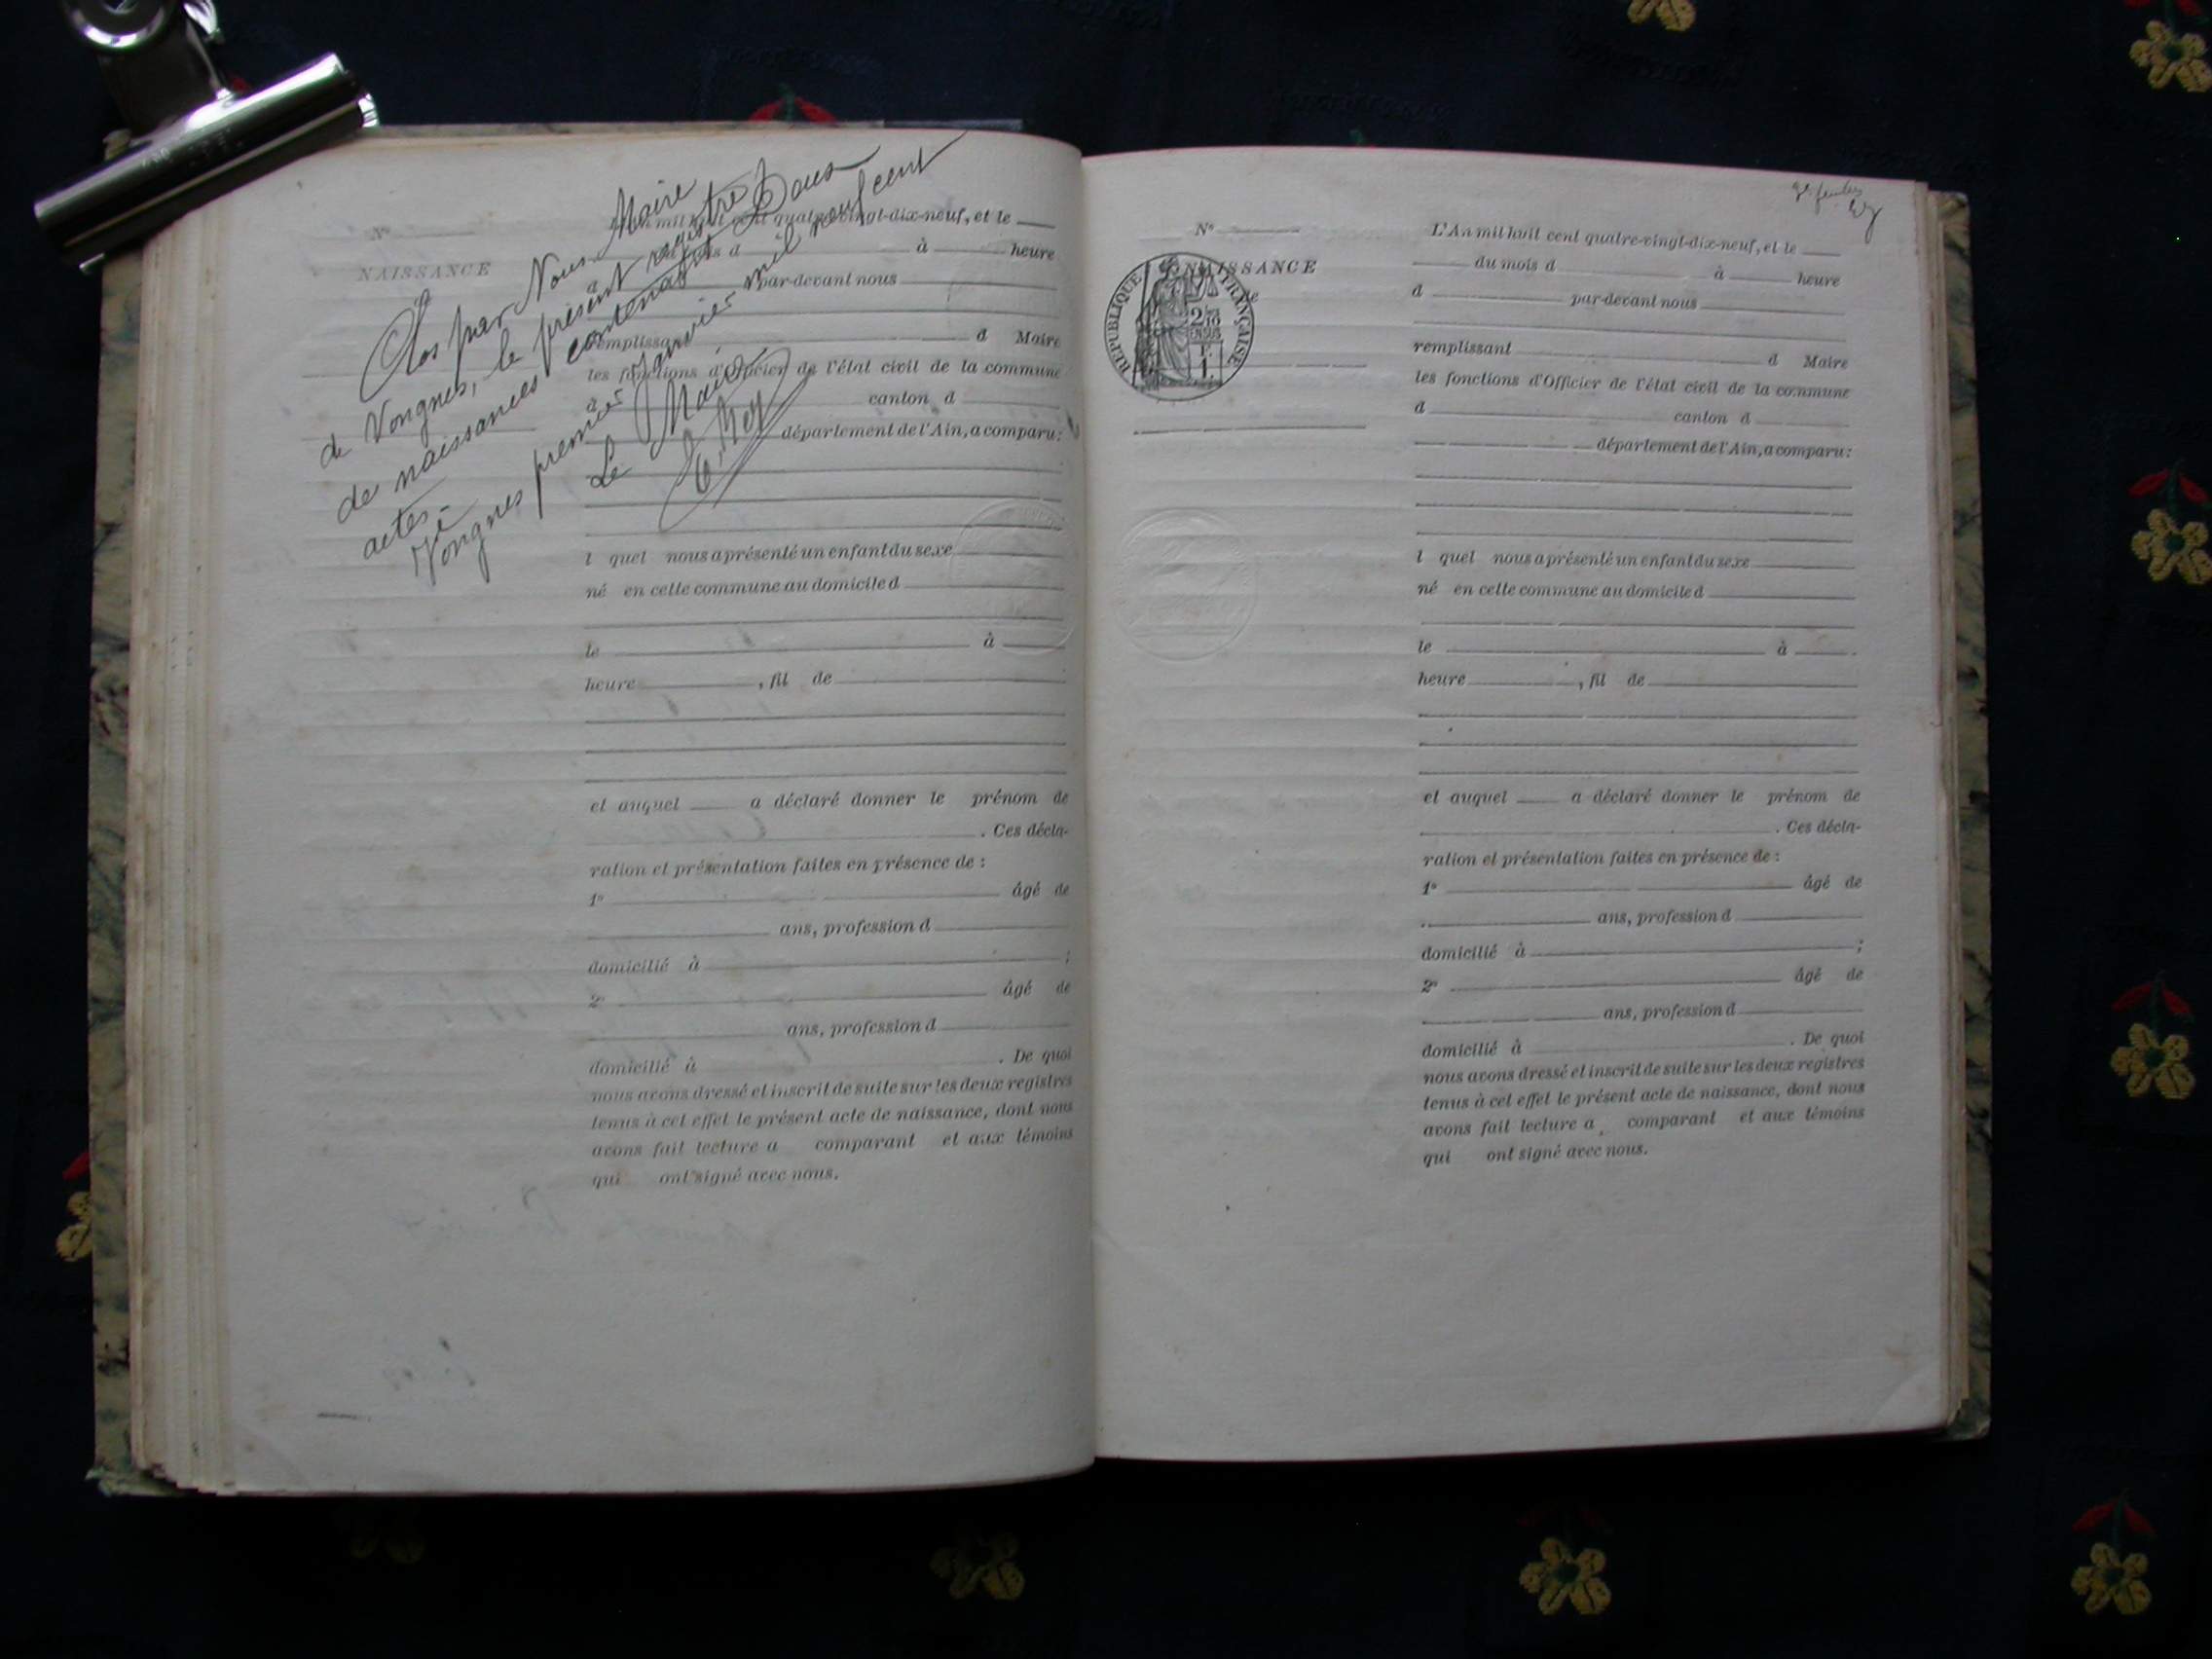 Clos par Nous Maire
de Vongnes, le présent registre
de naissances contenant Douze
actes.
Vongnes premier Janvier mil neuf cent
Le Maire
E. Rey
N°
NAISSANCE
L'An mil huit cent quatre-vingt-dix-neuf, et le
du mois d à heure
d par-devant nous
remplissant d Maire
les fonctions d'Officier de l'état civil de la commune
d canton d
département de l'Ain, a comparu:
l quel nous a présenté un enfant du sexe
né en cette commune au domicile d
le à
heure , fil de
et auquel a déclaré donner le prénom de
. Ces décla-
ration et présentation faites en présence de :
1° âgé de
ans, profession d
domicilié à ;
2° âgé de
ans, profession d
domicilié à . De quoi
nous avons dressé et inscrit de suite sur les deux registres
tenus à cet effet le présent acte de naissance, dont nous
avons fait lecture a comparant et aux témoins
qui ont signé avec nous.
N°
NAISSANCE
de
RÉPUBLIQUE FRANÇAISE
2/10 EN SUS
1 F.
L'An mil huit cent quatre-vingt-dix-neuf, et le
du mois d à heure
d par-devant nous
remplissant d Maire
les fonctions d'Officier de l'état civil de la commune
d canton d
département de l'Ain, a comparu:
l quel nous a présenté un enfant du sexe
né en cette commune au domicile d
le à
heure , fil de
et auquel a déclaré donner le prénom de
. Ces décla-
ration et présentation faites en présence de :
1° âgé de
ans, profession d
domicilié à ;
2° âgé de
ans, profession d
domicilié à . De quoi
nous avons dressé et inscrit de suite sur les deux registres
tenus à cet effet le présent acte de naissance, dont nous
avons fait lecture a comparant et aux témoins
qui ont signé avec nous.